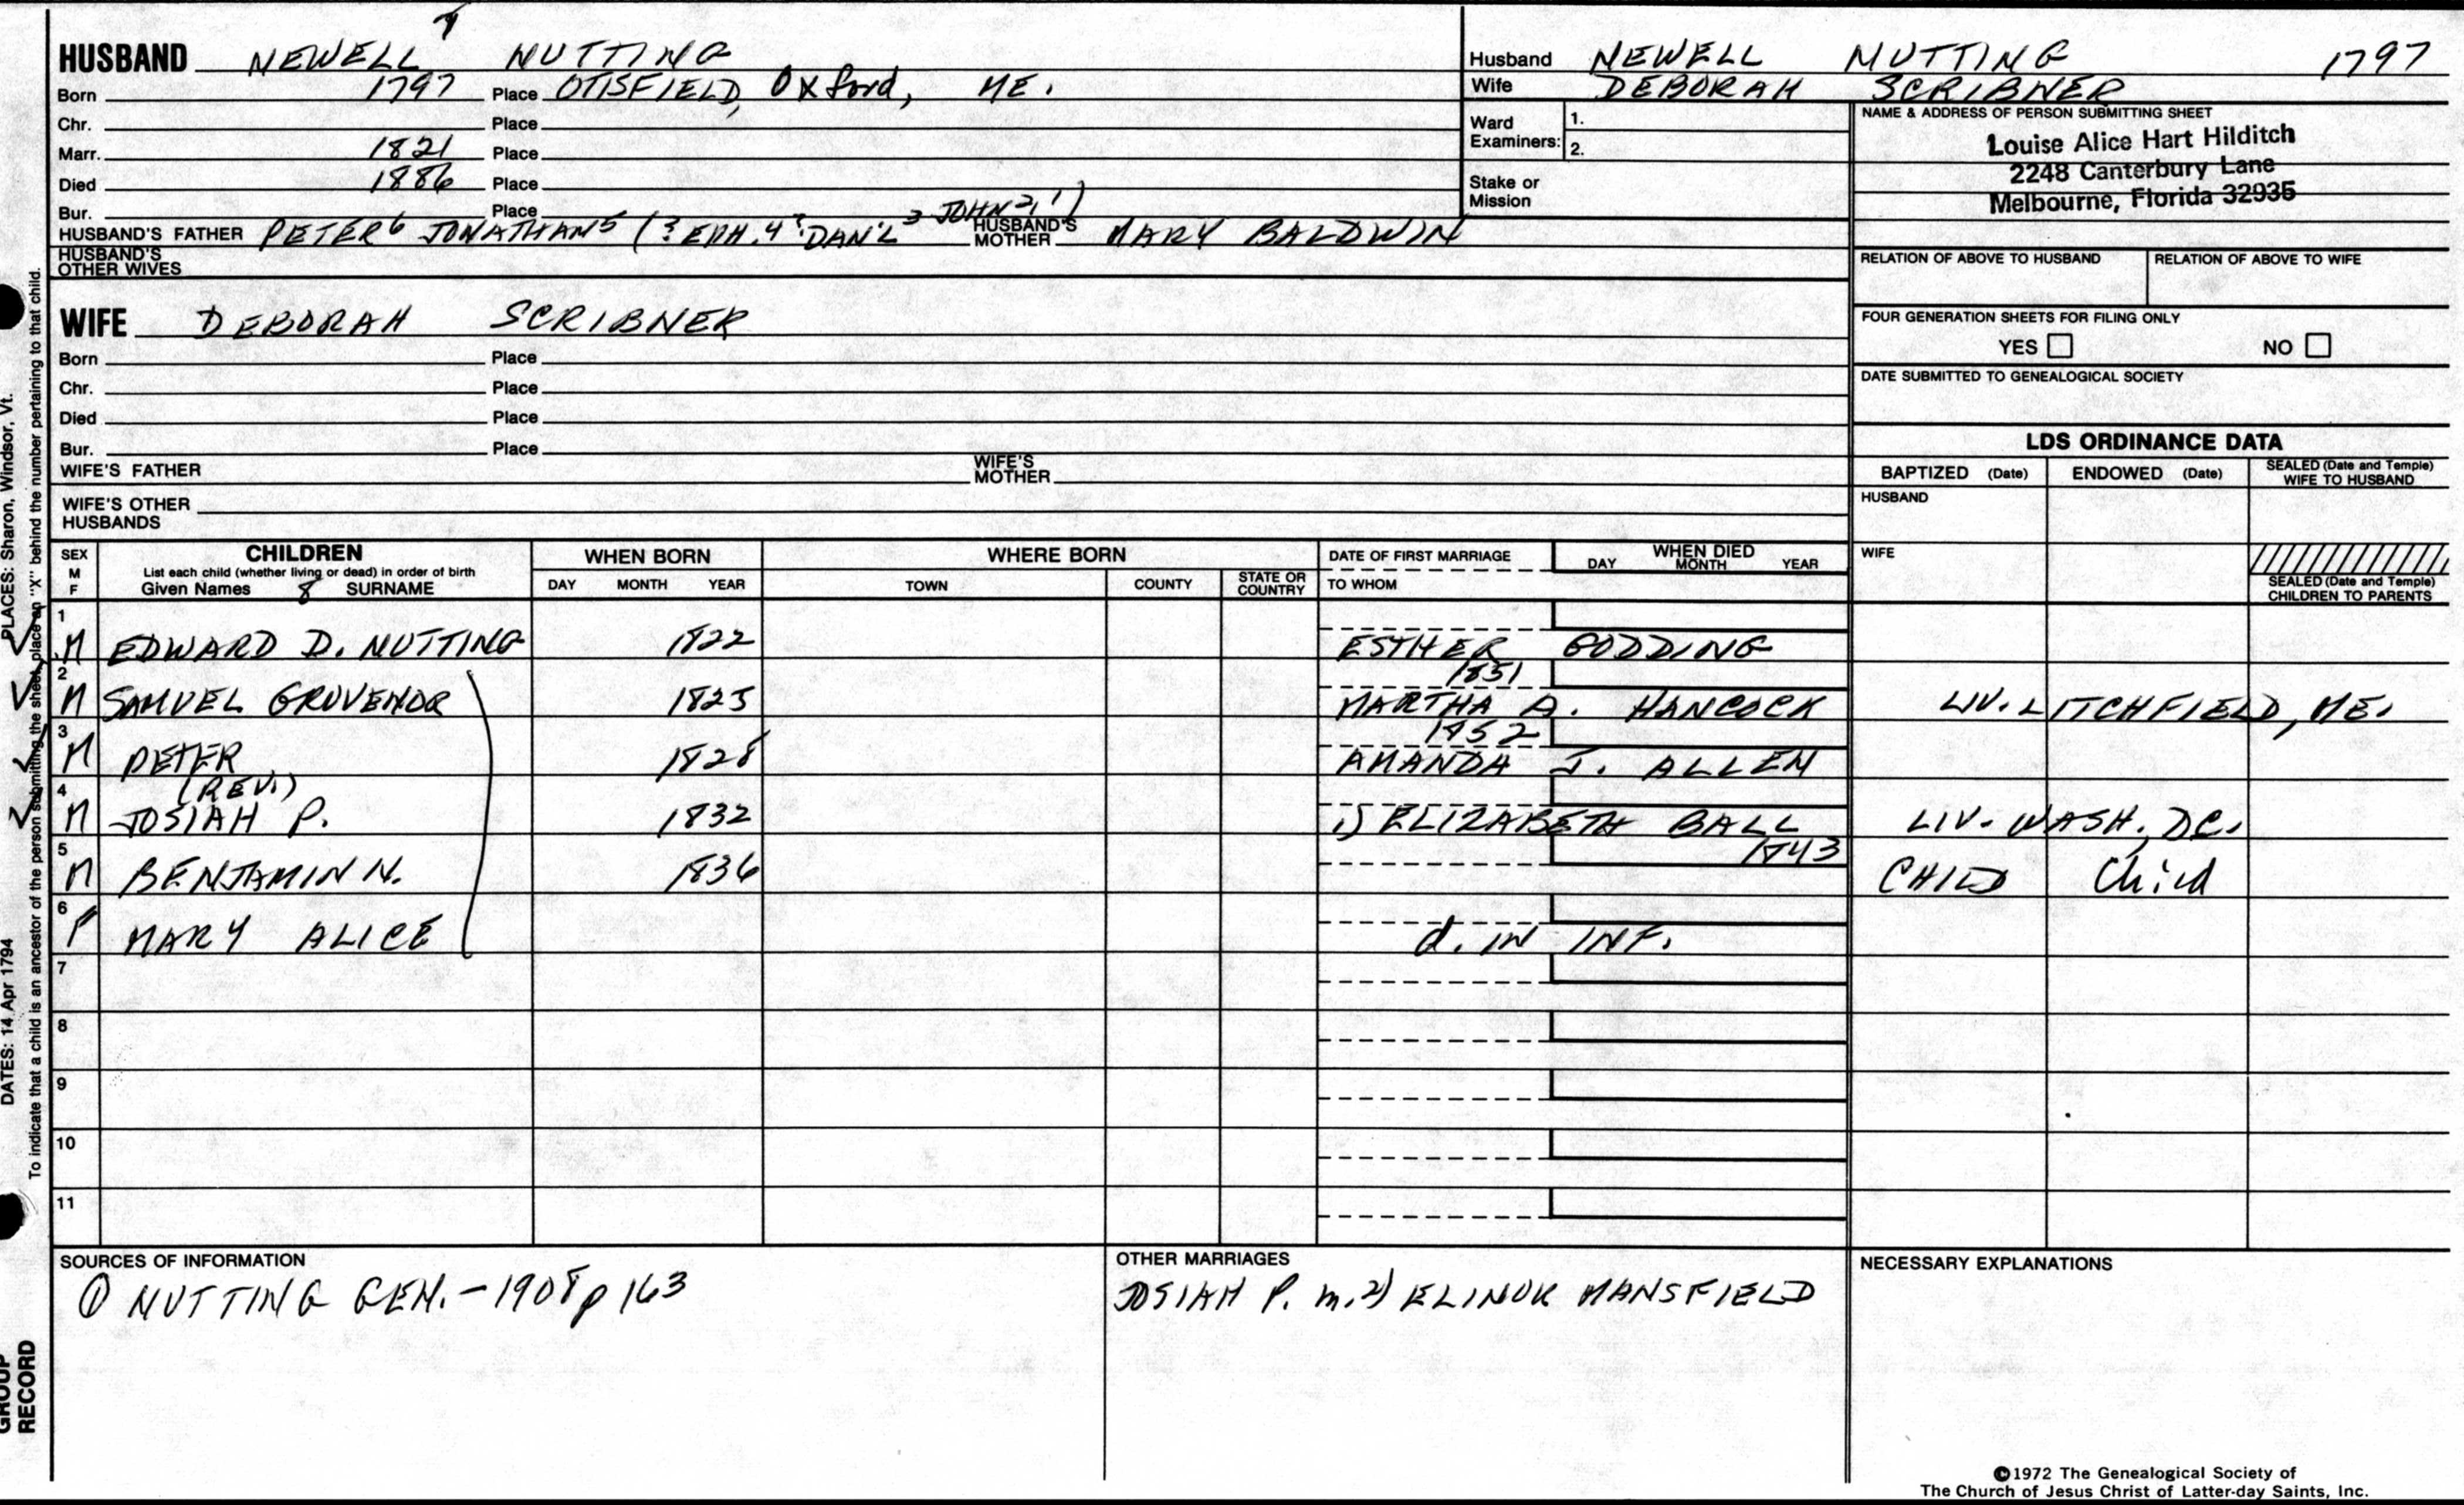 7
HUSBAND NEWELL NUTTING
Born 1797 Place OTISFIELD, Oxford, ME.
Chr. Place
Marr. 1821 Place
Died 1886 Place
Bur. Place
HUSBAND'S FATHER PETER 6 JONATHAN 5 (? EPH. 4 ? DAN'L 3 JOHN 2, 1) HUSBAND'S MOTHER MARY BALDWIN
HUSBAND'S OTHER WIVES
WIFE DEBORAH SCRIBNER
Born Place
Chr. Place
Died Place
Bur. Place
WIFE'S FATHER WIFE'S MOTHER
WIFE'S OTHER HUSBANDS
Husband NEWELL NUTTING 1797
Wife DEBORAH SCRIBNER
Ward Examiners: 1.
2.
Stake or Mission
NAME & ADDRESS OF PERSON SUBMITTING SHEET
Louise Alice Hart Hilditch
2248 Canterbury Lane
Melbourne, Florida 32935
RELATION OF ABOVE TO HUSBAND RELATION OF ABOVE TO WIFE
FOUR GENERATION SHEETS FOR FILING ONLY
YES NO
DATE SUBMITTED TO GENEALOGICAL SOCIETY
LDS ORDINANCE DATA
BAPTIZED (Date) ENDOWED (Date) SEALED (Date and Temple) WIFE TO HUSBAND
HUSBAND
WIFE
SEALED (Date and Temple) CHILDREN TO PARENTS
SEX M F
CHILDREN
List each child (whether living or dead) in order of birth
Given Names 8 SURNAME
WHEN BORN
DAY MONTH YEAR
WHERE BORN
TOWN COUNTY STATE OR COUNTRY
DATE OF FIRST MARRIAGE
TO WHOM
WHEN DIED
DAY MONTH YEAR
1
M EDWARD D. NUTTING 1822 ESTHER GODDING
2 1851
M SAMUEL GROVENOR 1825 MARTHA A. HANCOCK LIV. LITCHFIELD, ME.
3 1852
M PETER 1828 AMANDA J. ALLEN
4 (REV.)
M JOSIAH P. 1832 1) ELIZABETH BALL LIV. WASH, DC.
5 1843
M BENJAMIN N. 1836 CHILD Child
6
F MARY ALICE d. IN INF.
7
8
9
10
11
SOURCES OF INFORMATION
① NUTTING GEN. - 1908 p 163
OTHER MARRIAGES
JOSIAH P. m. 2) ELINOR MANSFIELD
NECESSARY EXPLANATIONS
©1972 The Genealogical Society of
The Church of Jesus Christ of Latter-day Saints, Inc.
PLACES: Sharon, Windsor, Vt.
DATES: 14 Apr 1794
To indicate that a child is an ancestor of the person submitting the sheet, place an "X" behind the number pertaining to that child.
GROUP
RECORD